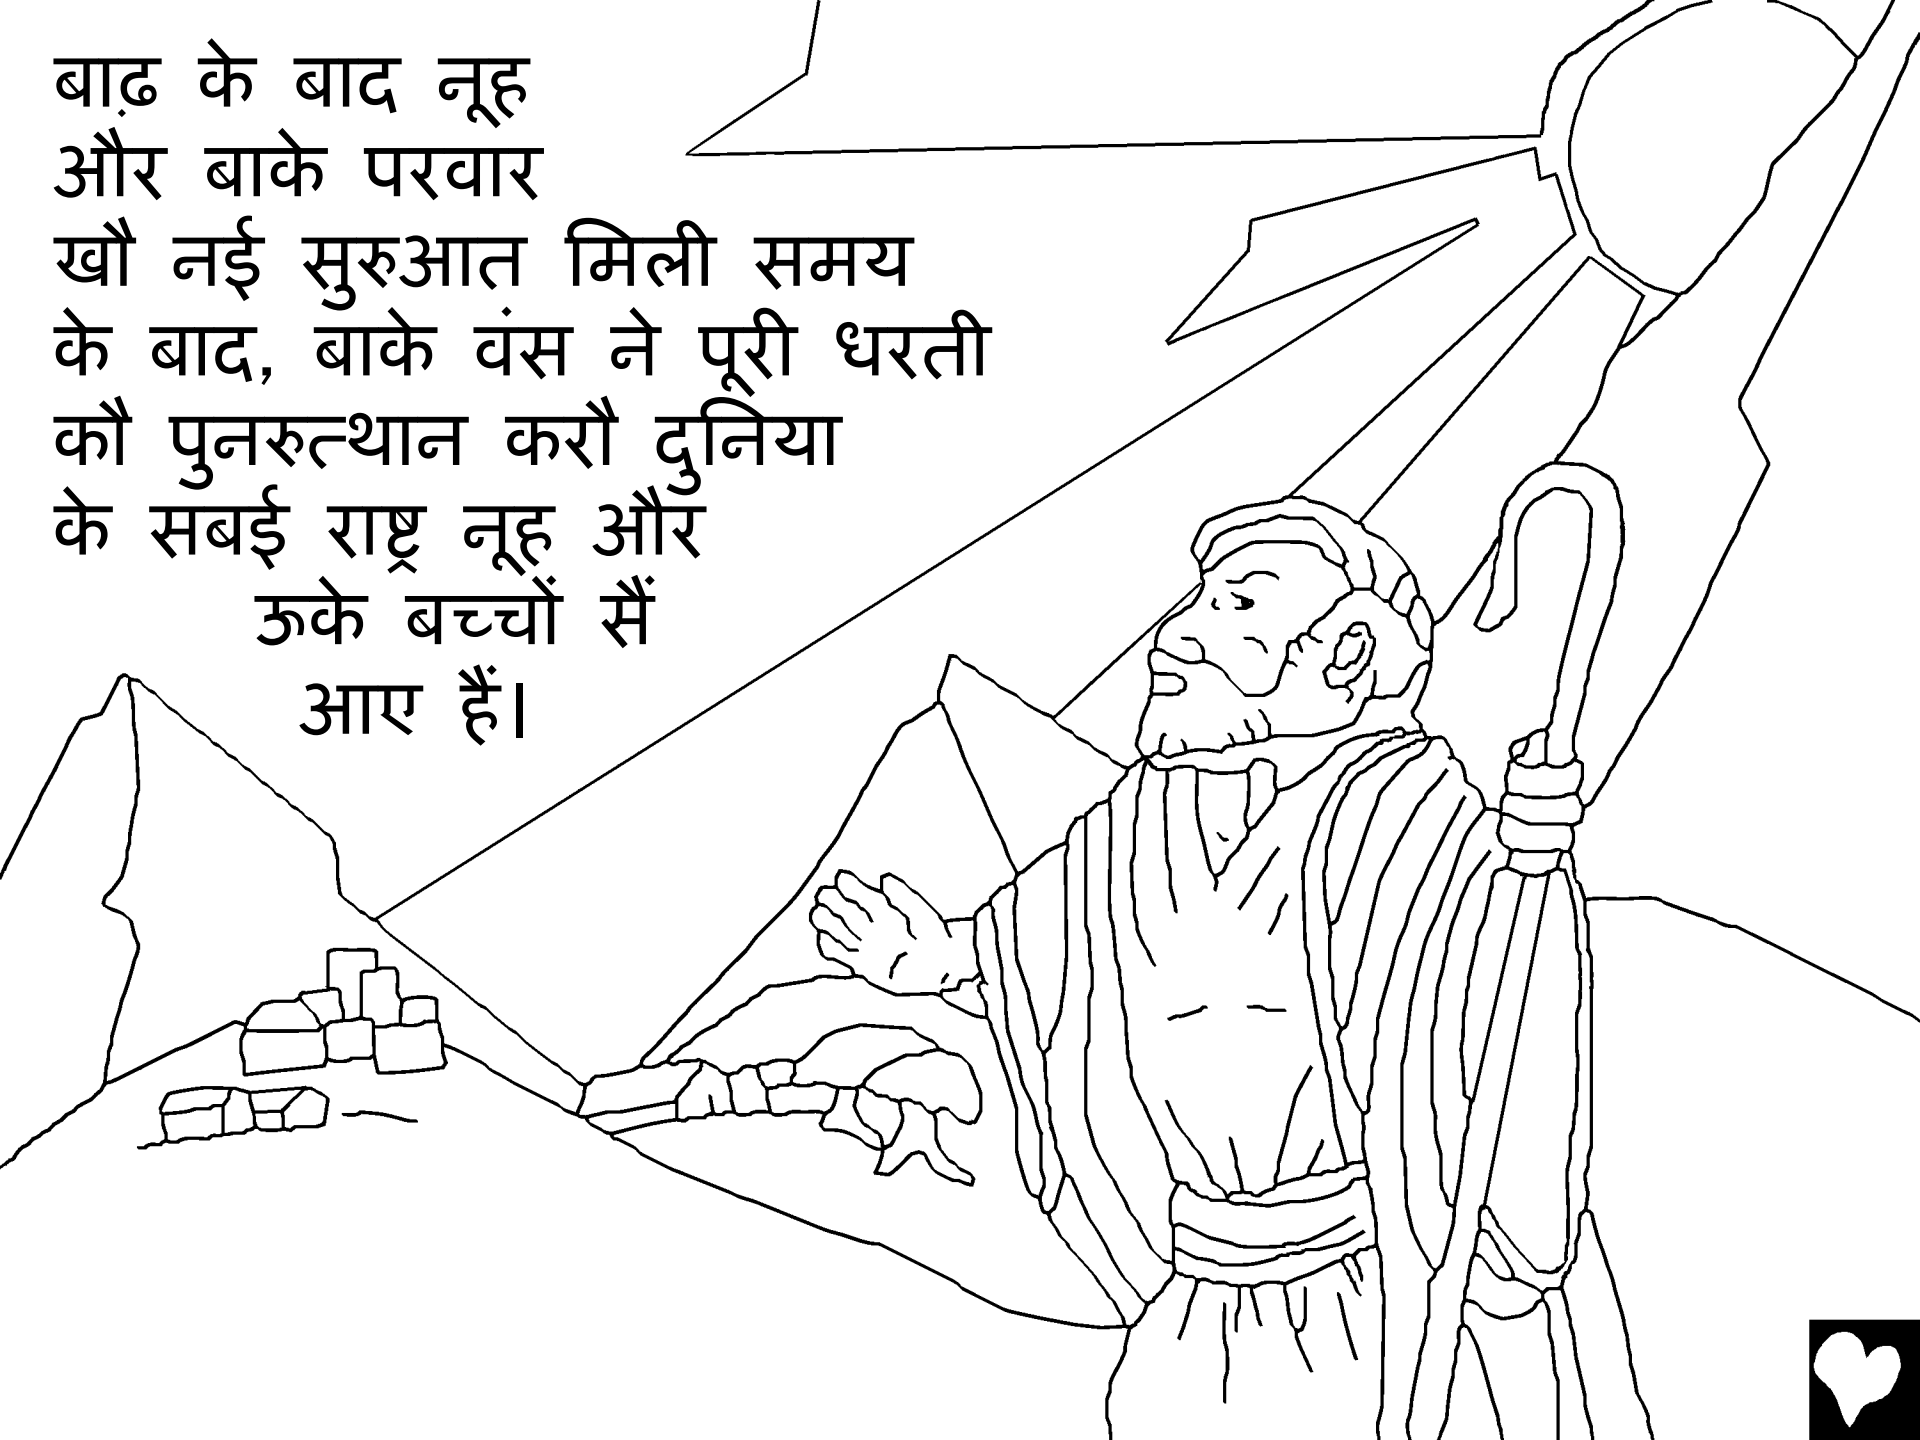 बाढ़ के बाद नूह
और बाके परवार
खौ नई सुरुआत मिली समय
के बाद, बाके वंस ने पूरी धरती
कौ पुनरुत्थान करौ दुनिया
के सबई राष्ट्र नूह और
ऊके बच्चों सैं
आए हैं।